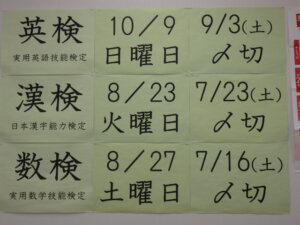 英検
実用英語技能検定
10/9
日曜日
9/3(土)
〆切
漢検
日本漢字能力検定
8/23
火曜日
7/23(土)
〆切
数検
実用数学技能検定
8/27
土曜日
7/16(土)
〆切